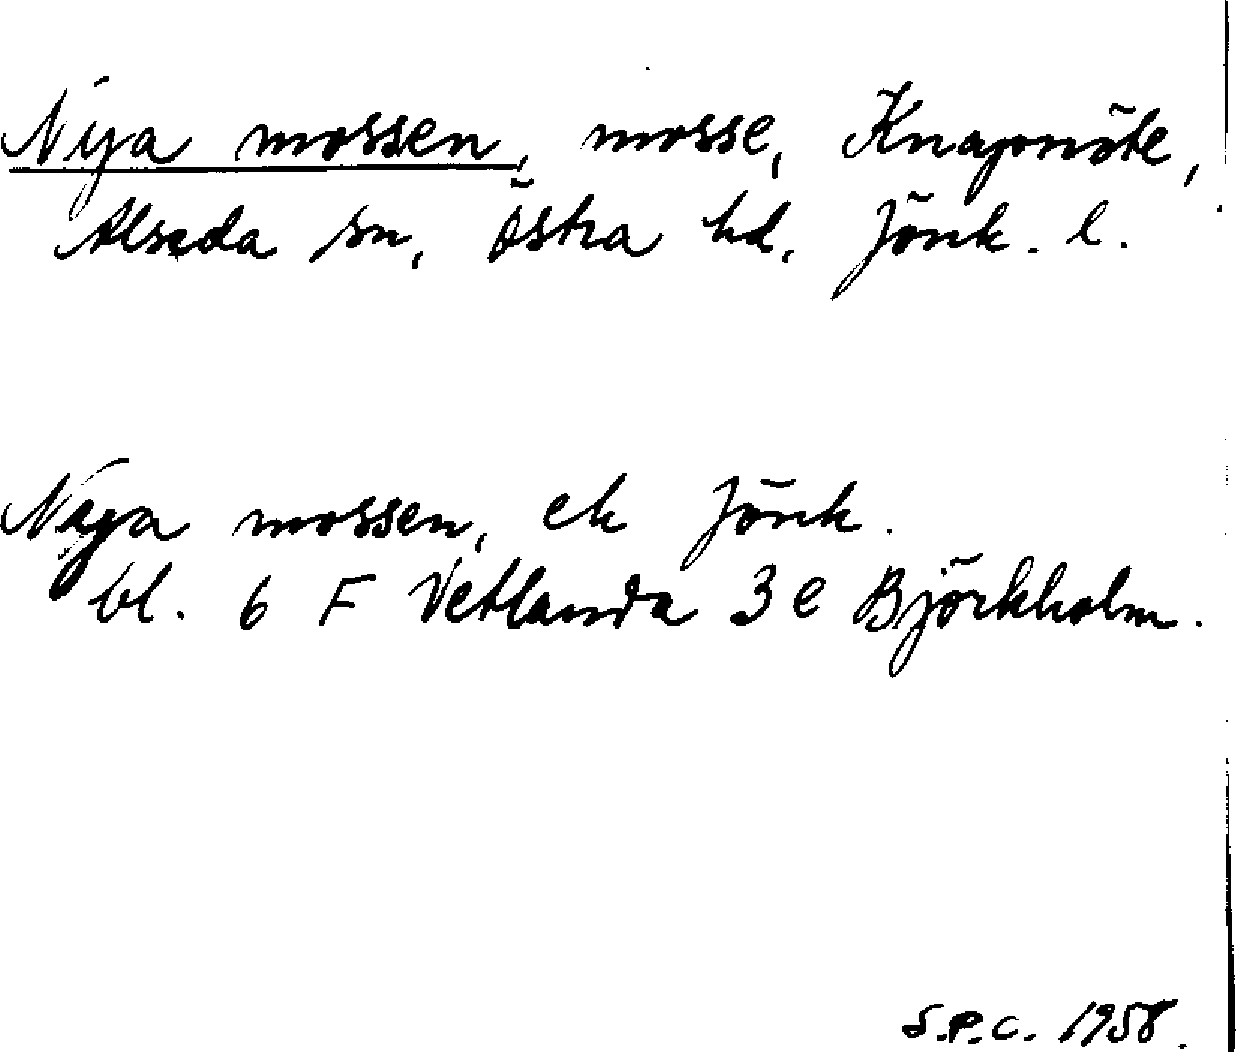 Nya mossen, mosse, Knapnöte,
Alseda sn, Östra hd, Jönk. l.
Nya mossen, ek Jönk.
bl. 6 F Vetlanda 3 e Björkholm.
S.P.C. 1958.